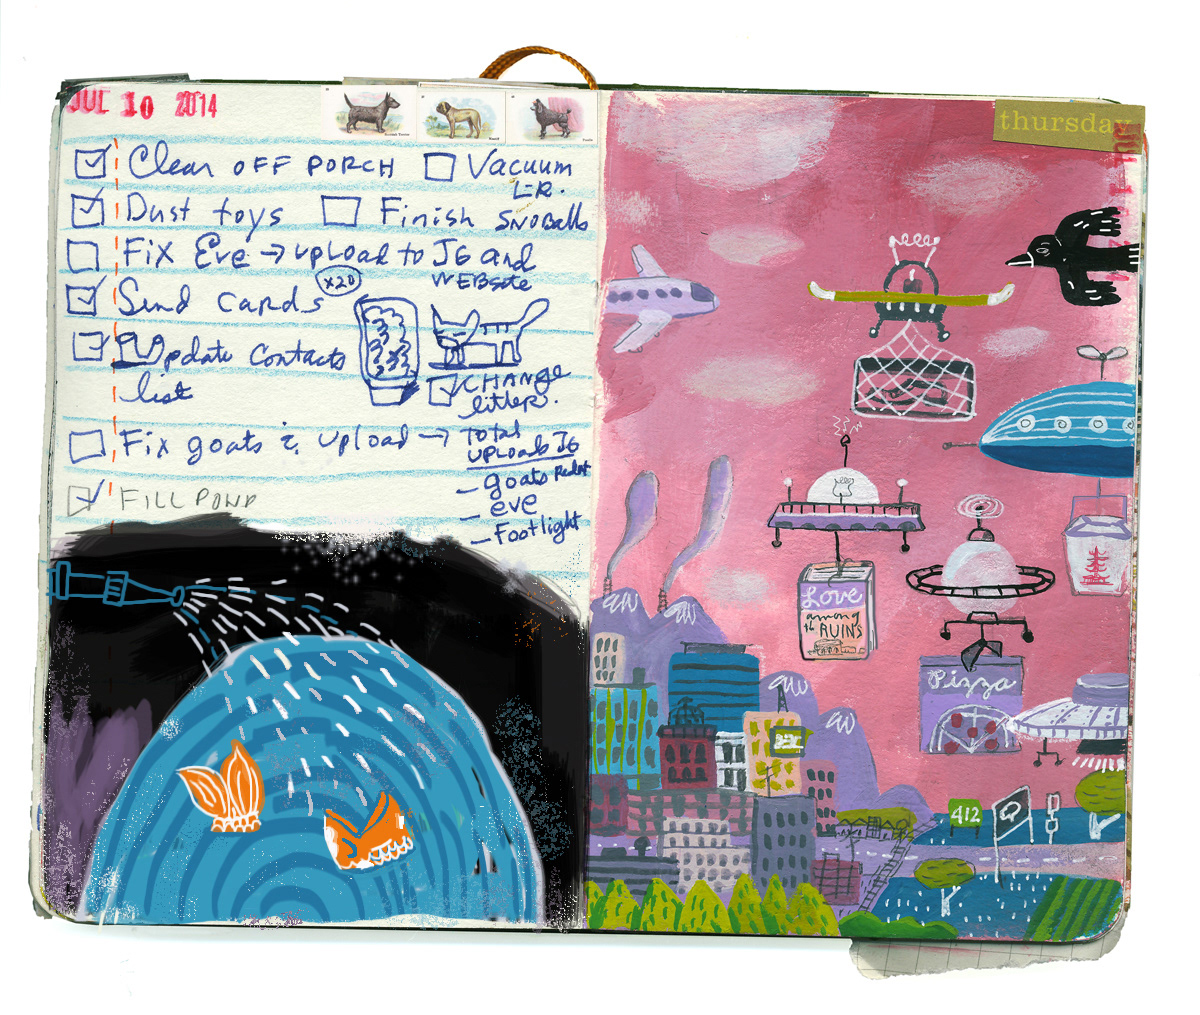 JUL 10 2014
Clear OFF PORCH
Vacuum
L-R.
Dust toys
Finish
SNOBalls
Fix Eve → upload to JG and
WEBsite
Send cards
x20
update contacts
list
CHANGE
litter.
Fix goats & upload →
total
UPLOADS JG
- goats
- eve
- Footlight
FILL POND
thursday
Love
among
the
RUINS
Pizza
412